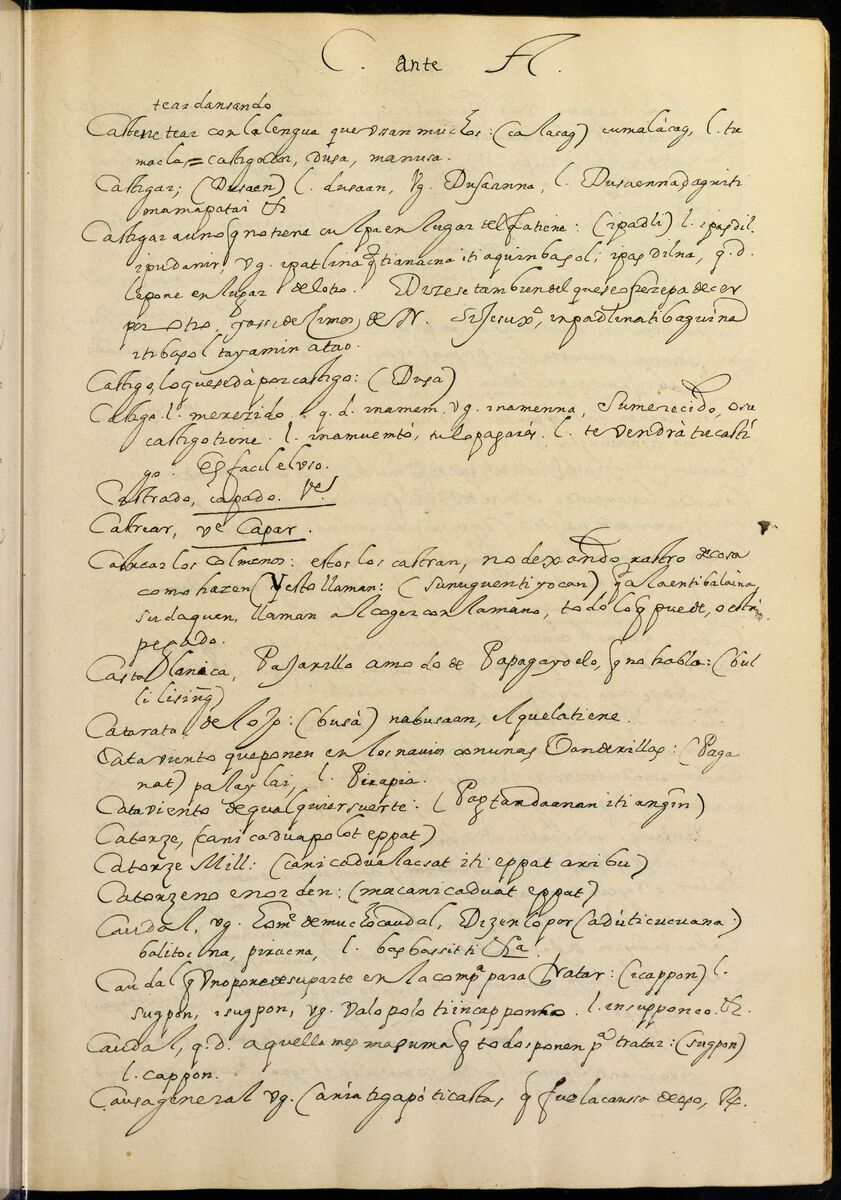 C. ante A.
tear dansando
Castenetear con la lengua que vssan muchos: (calacag) cumalácag, l. tu
macla,= castigador, dusa, manusa.
Castigar; (Dusaen) l. dusaan, vg. Dusaanna, l. Dusaennadagniti
mamapatai &
Castigar auno q no tiene culpa en lugar del q la tiene: (ipadli) l. ipasdil.
ipudanin, vg. ipatlina tianacna iti aquinbasol; ipasdilna, q.d.
lepone en lugar del otro. Dizese tambien del que se ofreze pa decer
por otro, q assi dezimos, de N. S. Jesu xº, inpadlinatibaguina
iti basol tayamin atao.
Castigo, lo que se dà por castigo: (Dusa)
Castigo l. merezido, q.d. inamem, vg. inamenna, sumerecido, o su
castigo tiene. l. inamuemtó, tu lo pagarás. l. te vendrà tu casti
go. Es facil el vso.
Castrado, capado. Vᵉ
Castrear, vᵉ Capar.
Castrear los colmenos: estos los castran, no dexando rastro de cosa
como hazen (Y esto llaman: (sunuguenti yocan) q ala entibalaina,
sudaquen, llaman al coger con la mano, todo lo q puede, o esta
pegado.
Casta blanica, Pajarillo a modo de Papagayoelo, q no habla: (bul
lilising)
Catarata, de lo jo: (busà) nabusaan, el que la tiene.
Cataviento que ponen en los navios con unas Vanderillas: (Paga
nat) palaylai, l. Pirapia.
Cataviento de qualquier suerte: (Pagtandaanan iti angin)
Catorze, (sanicaduapolot eppat)
Catorze Mill: (sanicadualacsat iti eppat aribu)
Catorzeno en orden: (macanicaduat eppat)
Caudal, vg. homᵉ de mucho caudal, Dizenlo por (adúticucuana)
balitocna, piracna, l. basbassit ti &ᵃ.
Caudal q vno pone de su parte en la compᵃ para tratar: (icappon) l.
sugpon, isugpon, vg. Valo polo ti incapponco. l. insupponco. &.
Caudal, q.d. aquella mesma suma q todos ponen pᵃ tratar: (sugpon)
l. cappón.
Causa general vg. (anía tigapó ticasta, q fue la caussa de eso, &c.